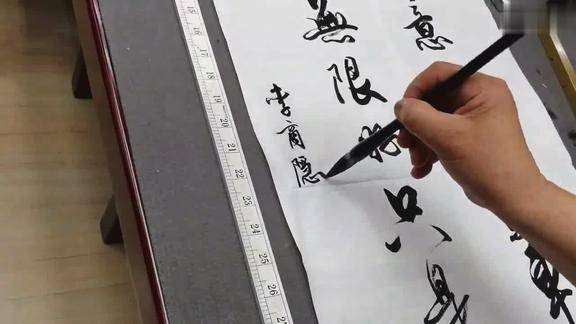 意
無限好只是
李商隐
15 16 17 18 19 20 21 22 23 24 25 26 27